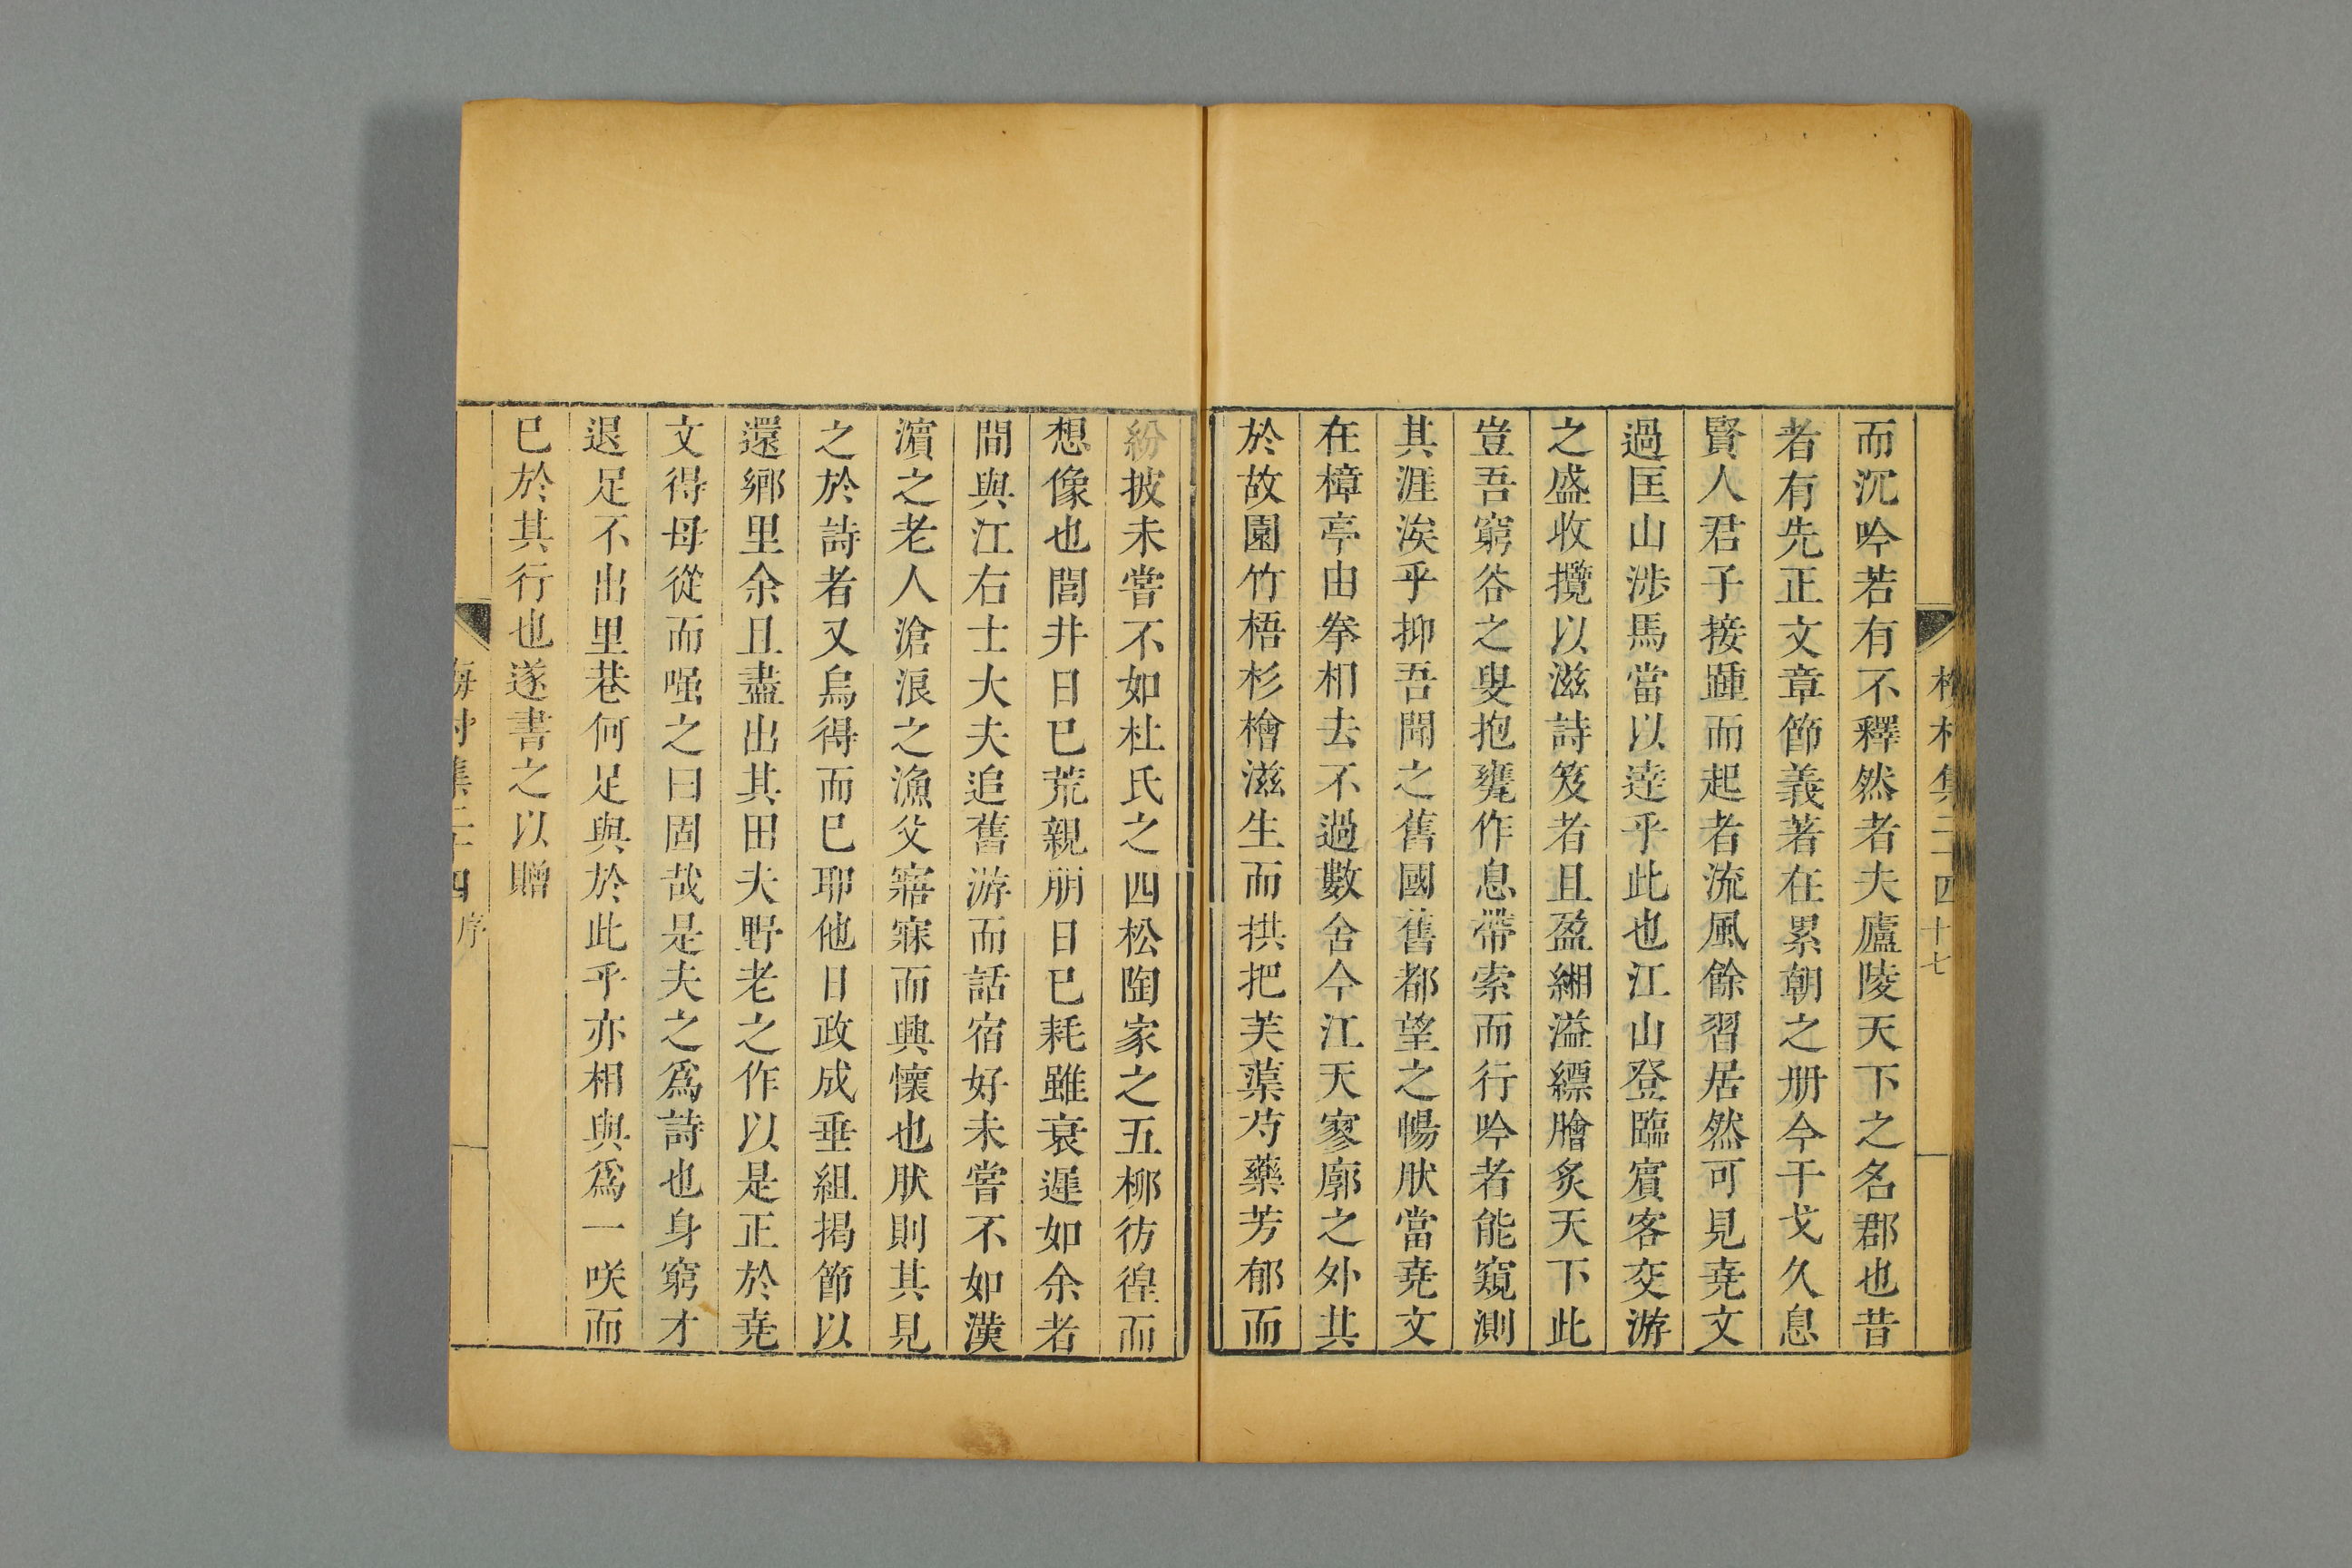 而沉吟若有不釋然者夫廬陵天下之名郡也昔
者有先正文章節義著在累朝之册今干戈久息
賢人君子接踵而起者流風餘習居然可見堯文
過匡山涉馬當以逹乎此也江山登臨賔客交游
之盛收攬以滋詩笈者且盈緗溢縹膾炙天下此
豈吾窮谷之叟抱甕作息帶索而行吟者能窺測
其涯涘乎抑吾聞之舊國舊都望之暢肰當堯文
在樟亭由拳相去不過數舍今江天寥廓之外其
於故園竹梧杉檜滋生而拱把芙蕖芍藥芳郁而
紛披未嘗不如杜氏之四松陶家之五柳彷徨而
想像也閭井日已荒親朋日已耗雖衰遲如余者
間與江右士大夫追舊游而話宿好未嘗不如漢
濵之老人滄浪之漁父寤寐而興懷也肰則其見
之於詩者又烏得而已耶他日政成垂組揭節以
還鄉里余且盡出其田夫野老之作以是正於堯
文得毋從而嗤之曰固哉是夫之爲詩也身窮才
退足不出里巷何足與於此乎亦相與爲一咲而
已於其行也遂書之以贈
梅村集二十四序